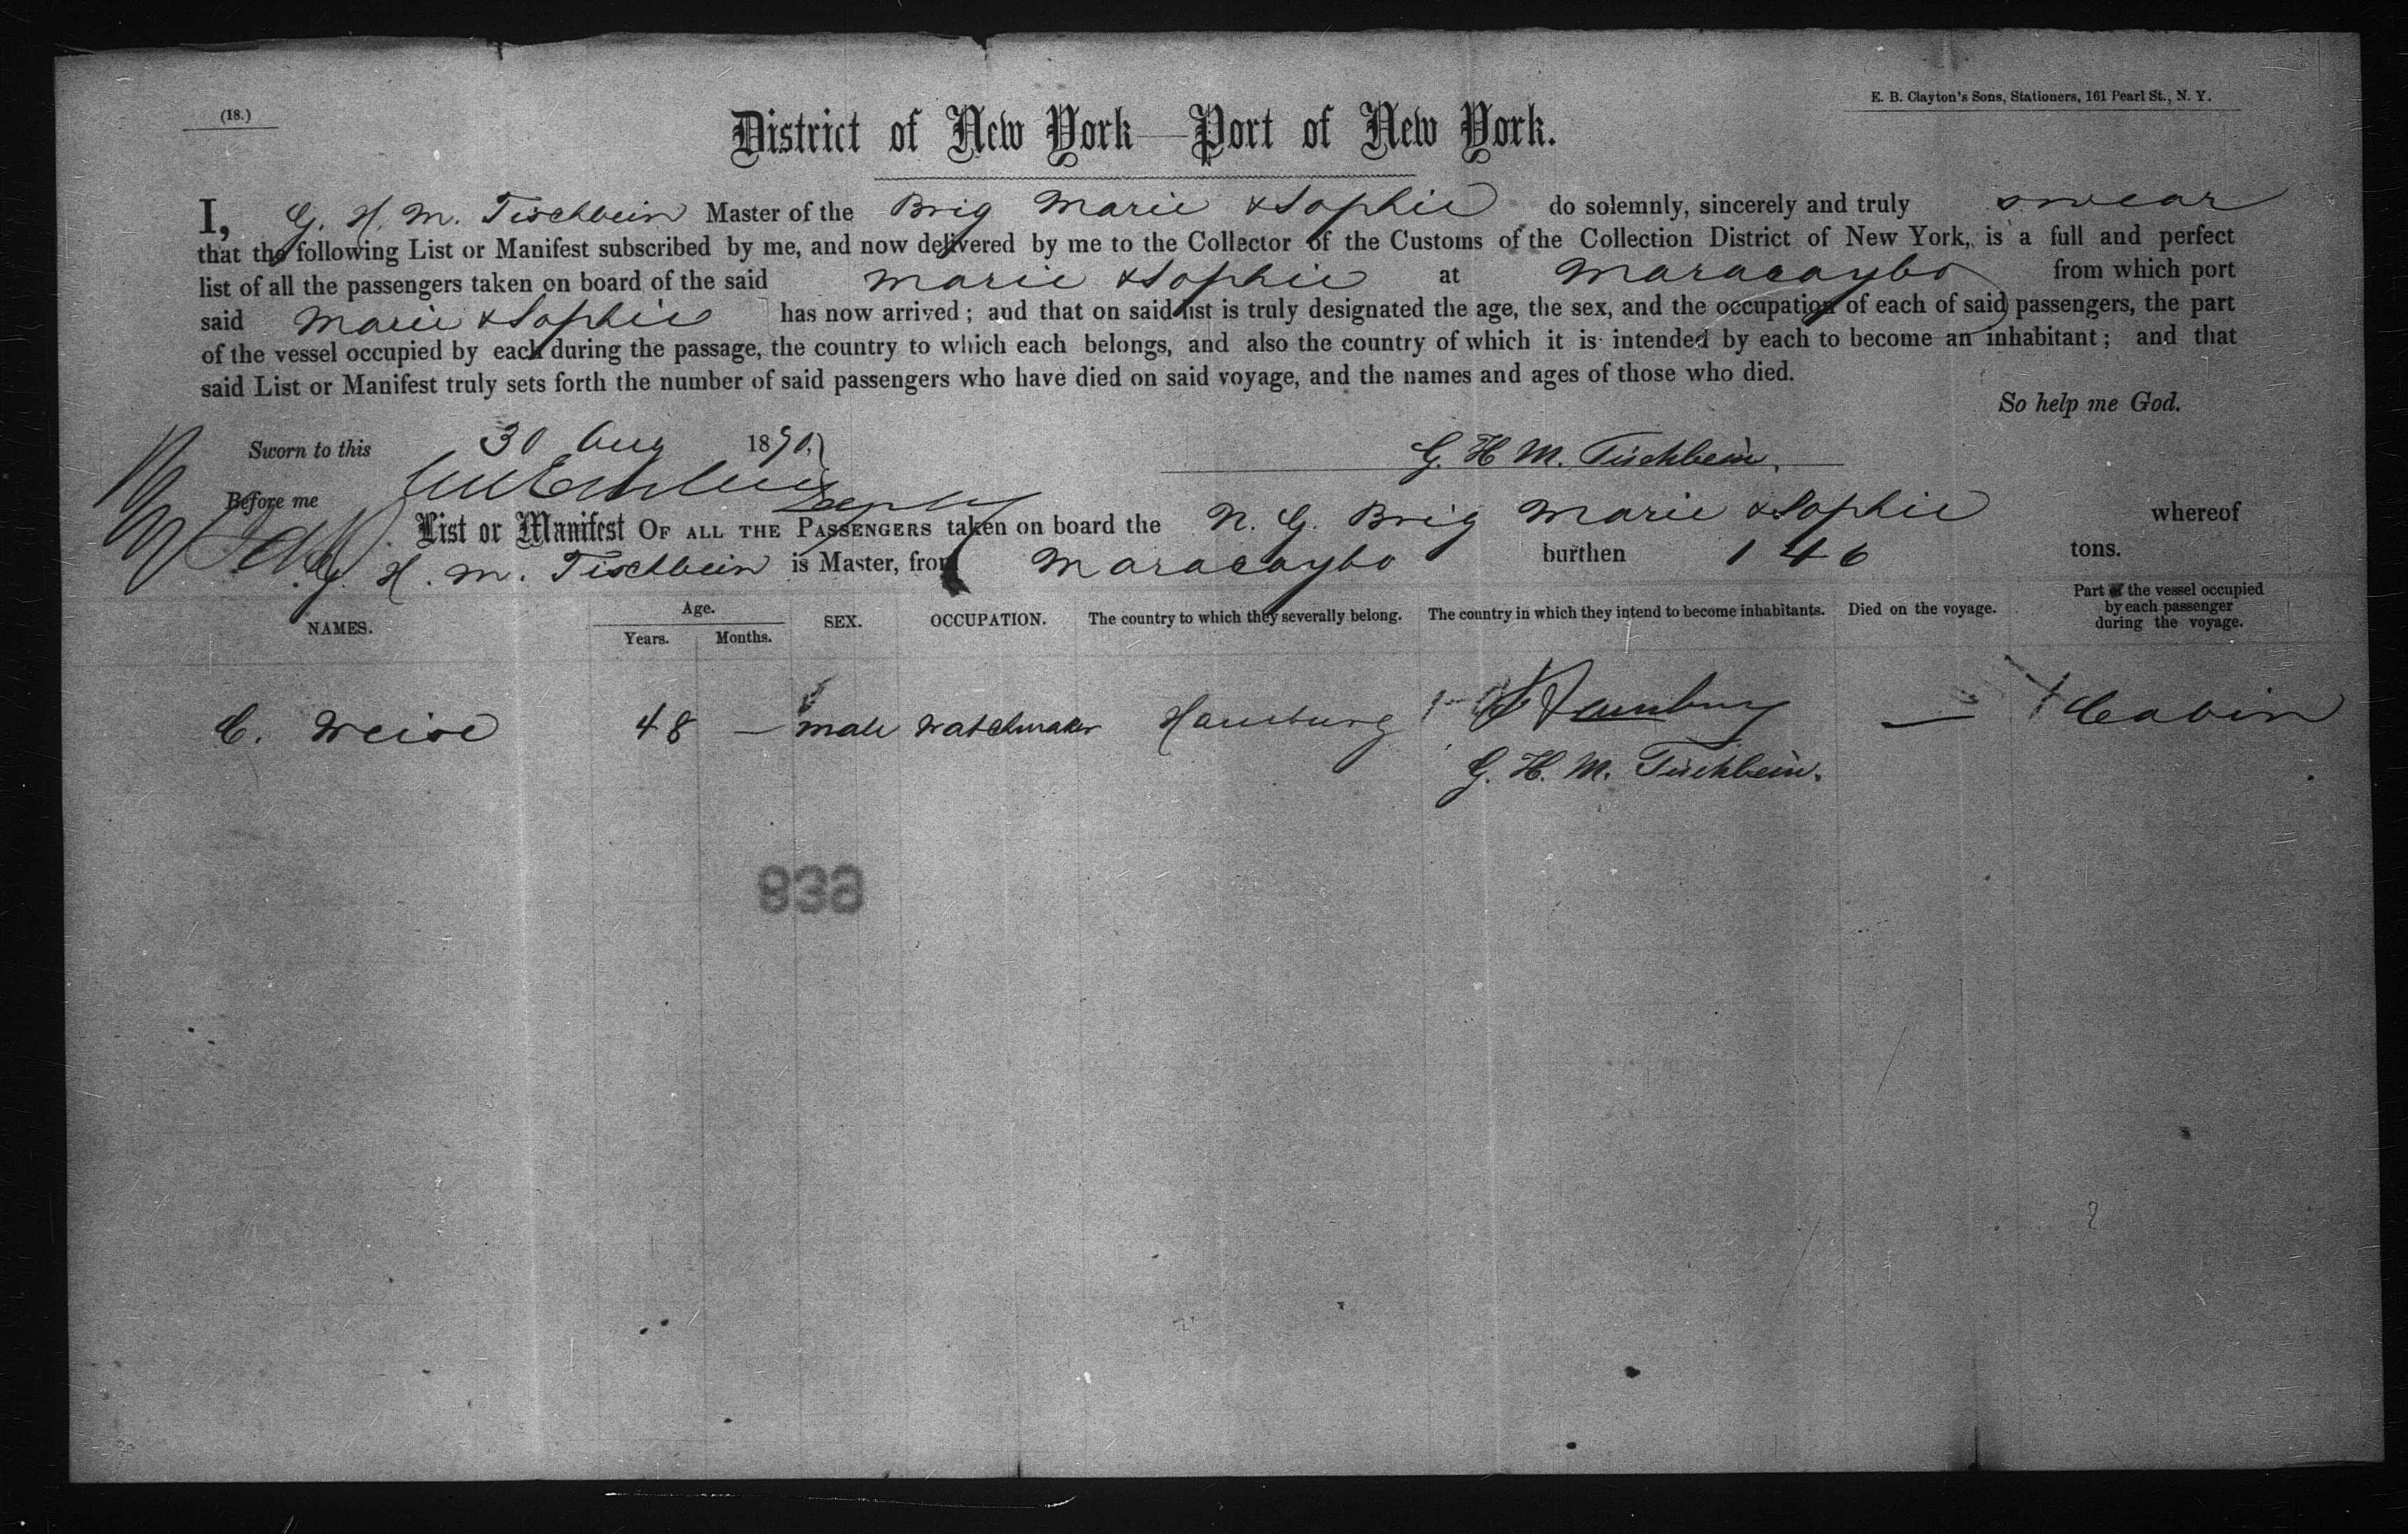 (18.)
E. B. Clayton's Sons, Stationers, 161 Pearl St., N. Y.
District of New York—Port of New York.
I, G. H. M. Tischbein Master of the Brig Marie & Sophie do solemnly, sincerely and truly swear
that the following List or Manifest subscribed by me, and now delivered by me to the Collector of the Customs of the Collection District of New York, is a full and perfect
list of all the passengers taken on board of the said Marie & Sophie at Maracaybo from which port
said Marie & Sophie has now arrived; and that on said list is truly designated the age, the sex, and the occupation of each of said passengers, the part
of the vessel occupied by each during the passage, the country to which each belongs, and also the country of which it is intended by each to become an inhabitant; and that
said List or Manifest truly sets forth the number of said passengers who have died on said voyage, and the names and ages of those who died.
So help me God.
Sworn to this 30 Aug 1870
G. H. M. Tischbein.
Before me
List or Manifest OF ALL THE PASSENGERS taken on board the N. G. Brig Marie & Sophie whereof
G. H. M. Tischbein is Master, from Maracaybo burthen 146 tons.
NAMES. Age. Years. Months. SEX. OCCUPATION. The country to which they severally belong. The country in which they intend to become inhabitants. Died on the voyage. Part of the vessel occupied by each passenger during the voyage.
C. Weise 48 — male watchmaker Hamburg Hamburg — Cabin
G. H. M. Tischbein.
838